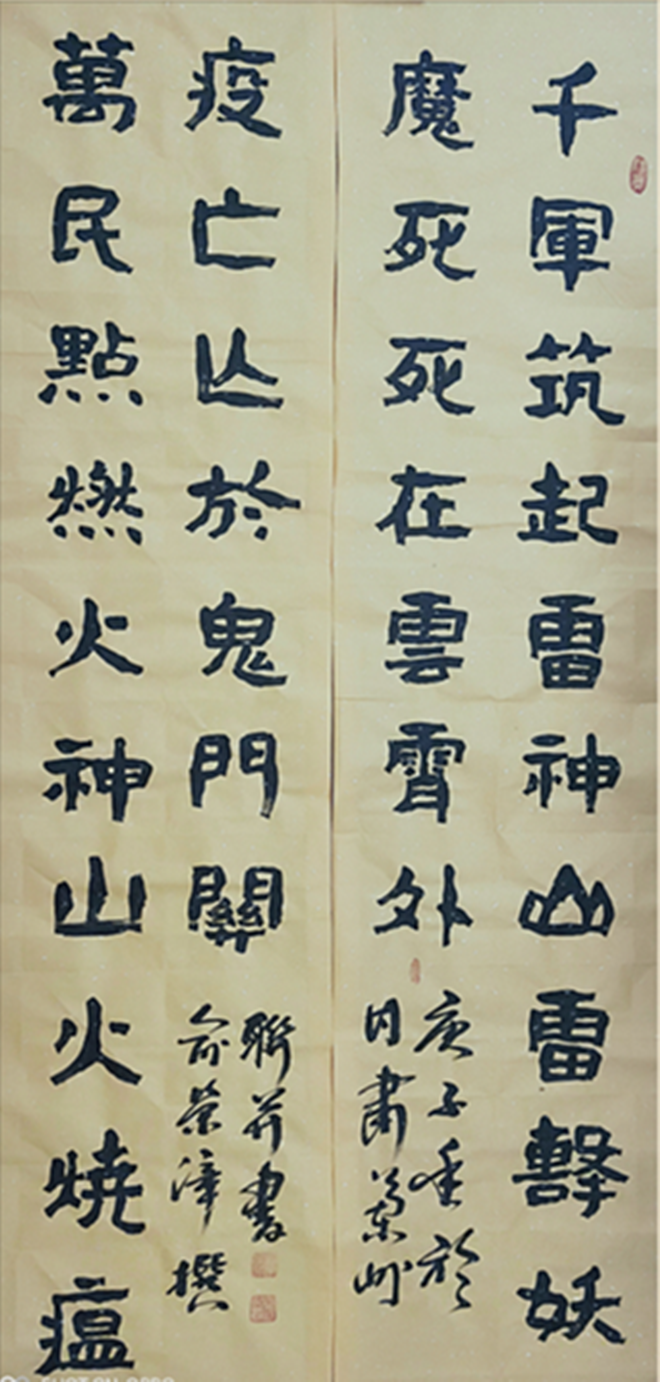 千軍筑起雷神山雷擊妖
魔死死在雲霄外
庚子年於
甘肅蘭州
萬民點燃火神山火燒瘟
疫亡亾於鬼門關
俞榮漳撰
聯并書